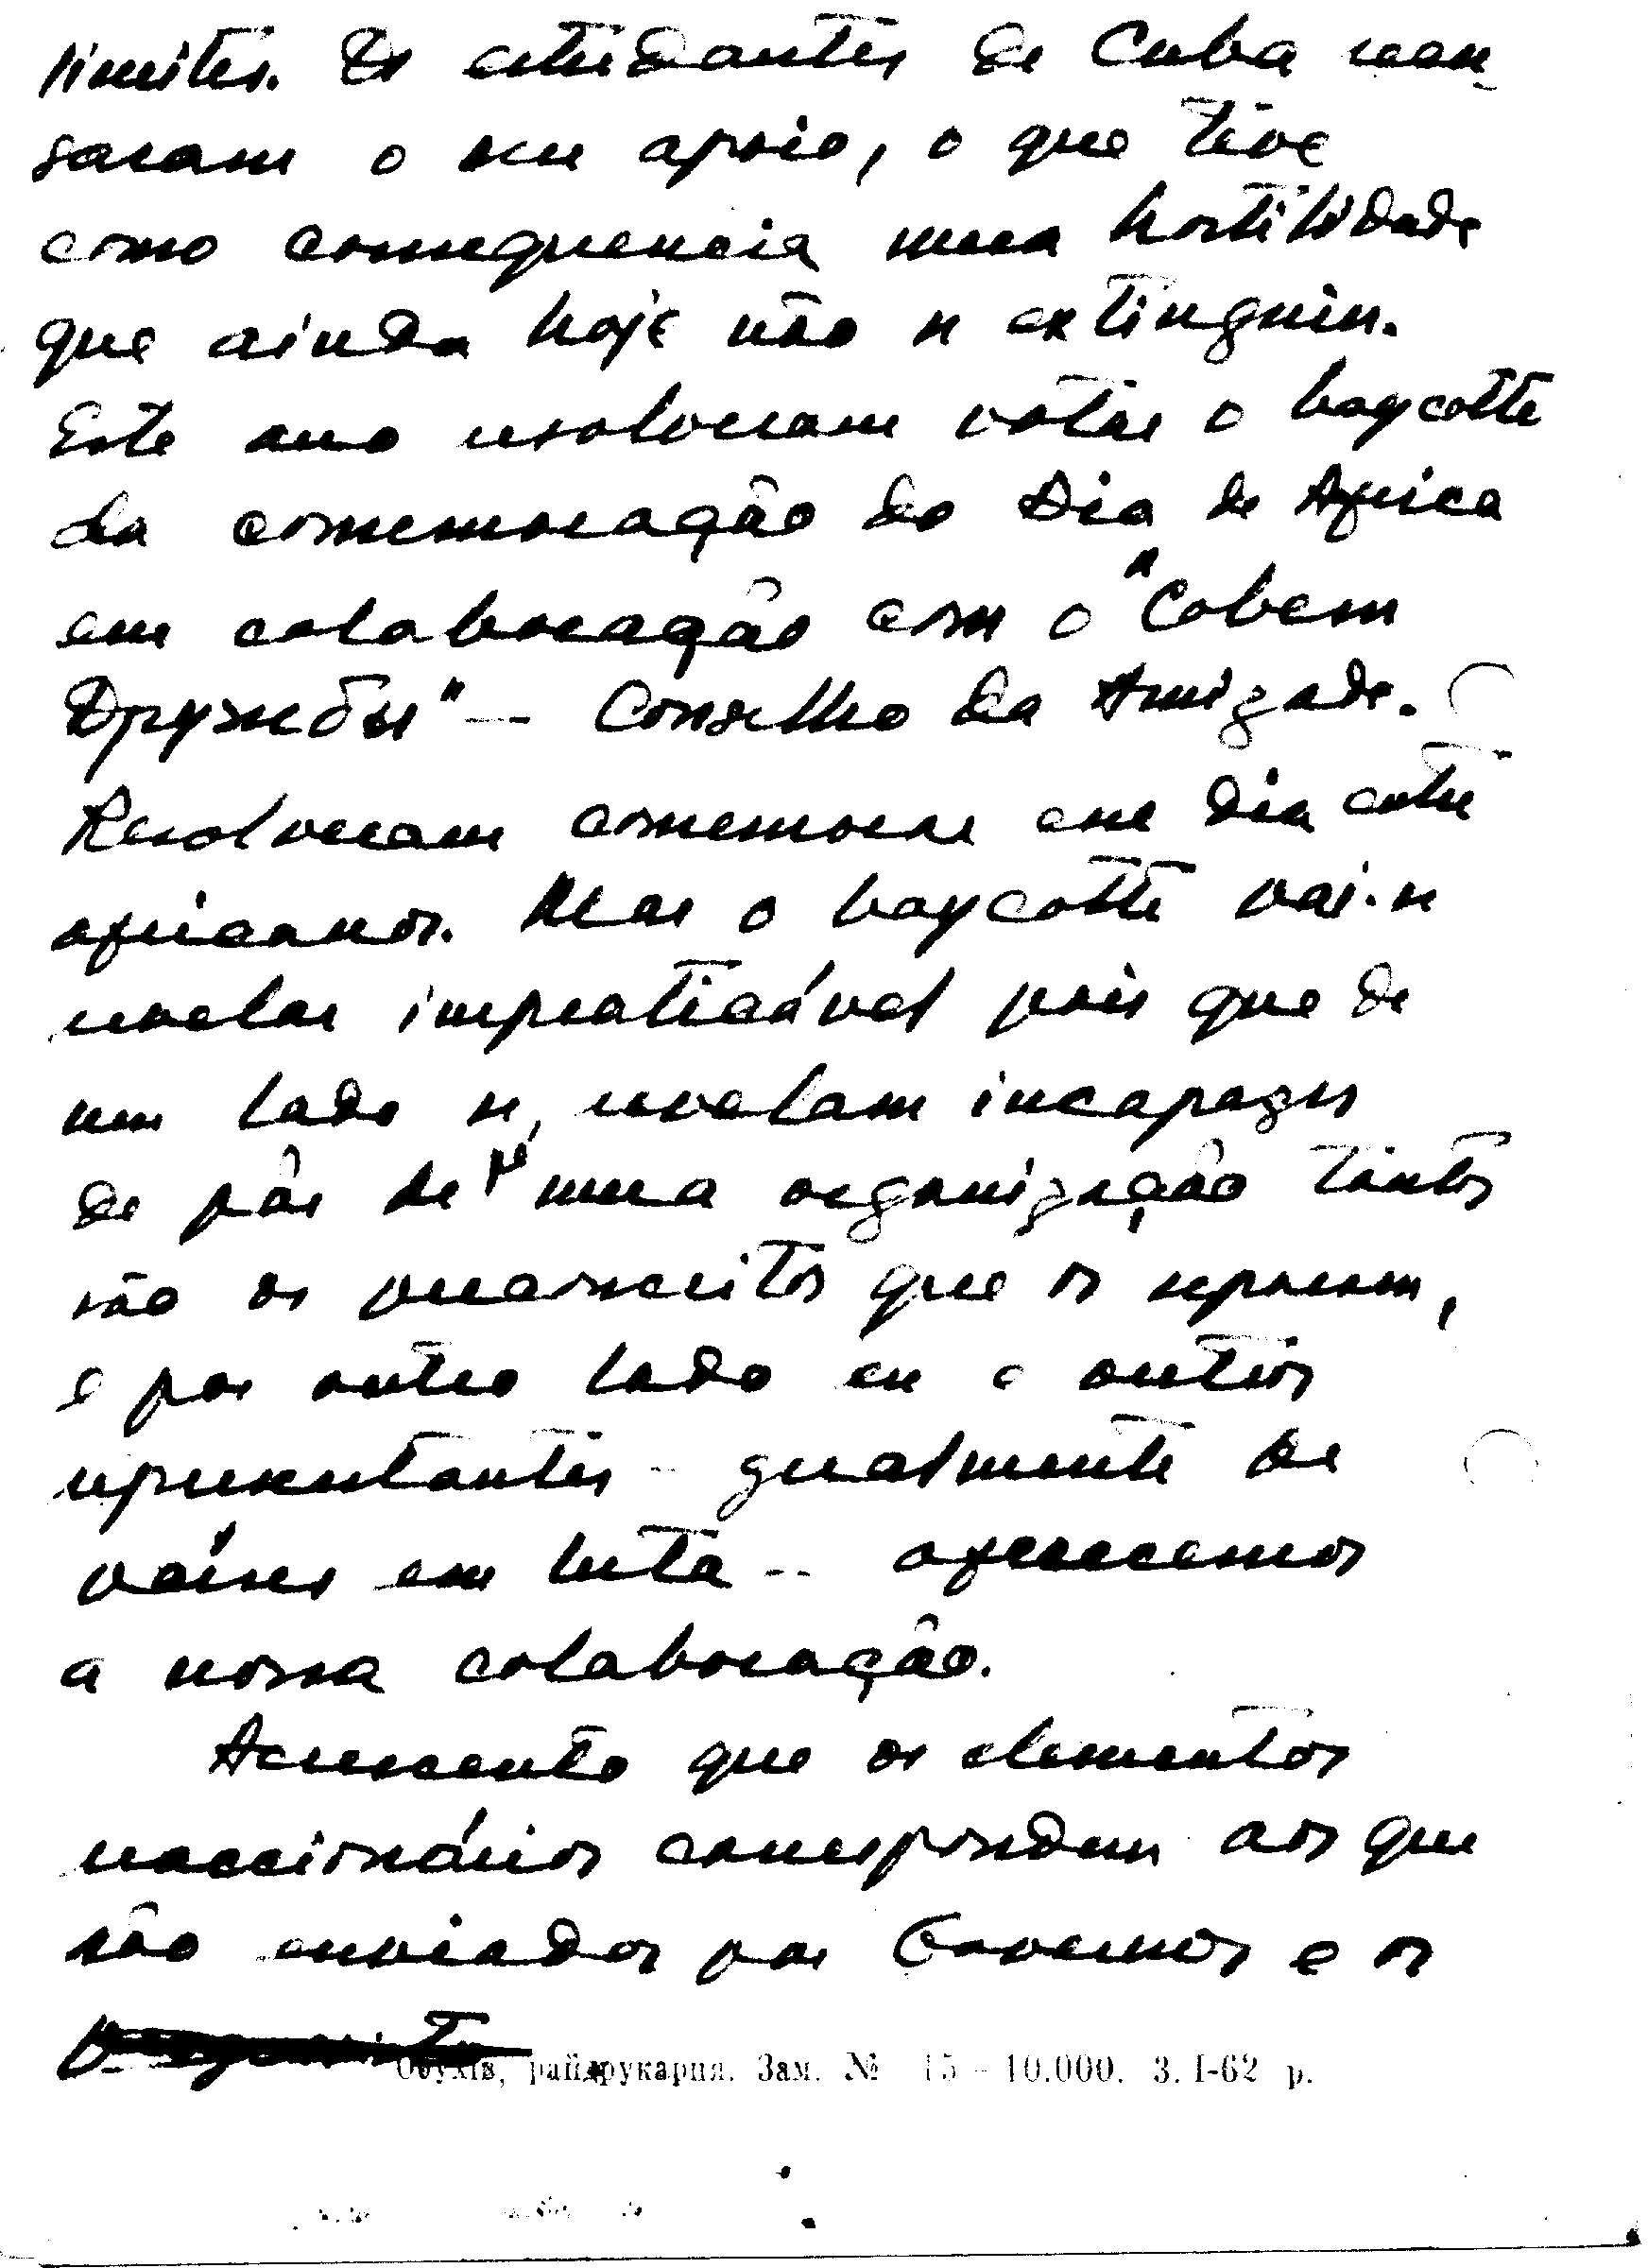 limites. Os estudantes de Cuba recu-
saram o seu apoio, o que teve
como consequencia uma hostilidade
que ainda hoje não se extinguiu.
Este ano resolveram votar o boycotte
da comemoração do Dia de Africa
em colaboração com o "Cobem
Дружбы" -- Conselho da Amizade.
Resolveram comemorar esse dia entre
africanos. Mas o boycotte vai-se
revelar impraticável pois que de
um lado se revelam incapazes
de pôr de pé uma organização tantos
são os preconceitos que os separam,
e por outro lado eu e outros
representantes - gualmente de
países em luta -- oferecemos
a nossa colaboração.
Acrescento que os elementos
reaccionários correspondem aos que
são enviados por Governos e os
Обухів, райдрукарня. Зам. № 15 - 10.000. 3. I-62 р.